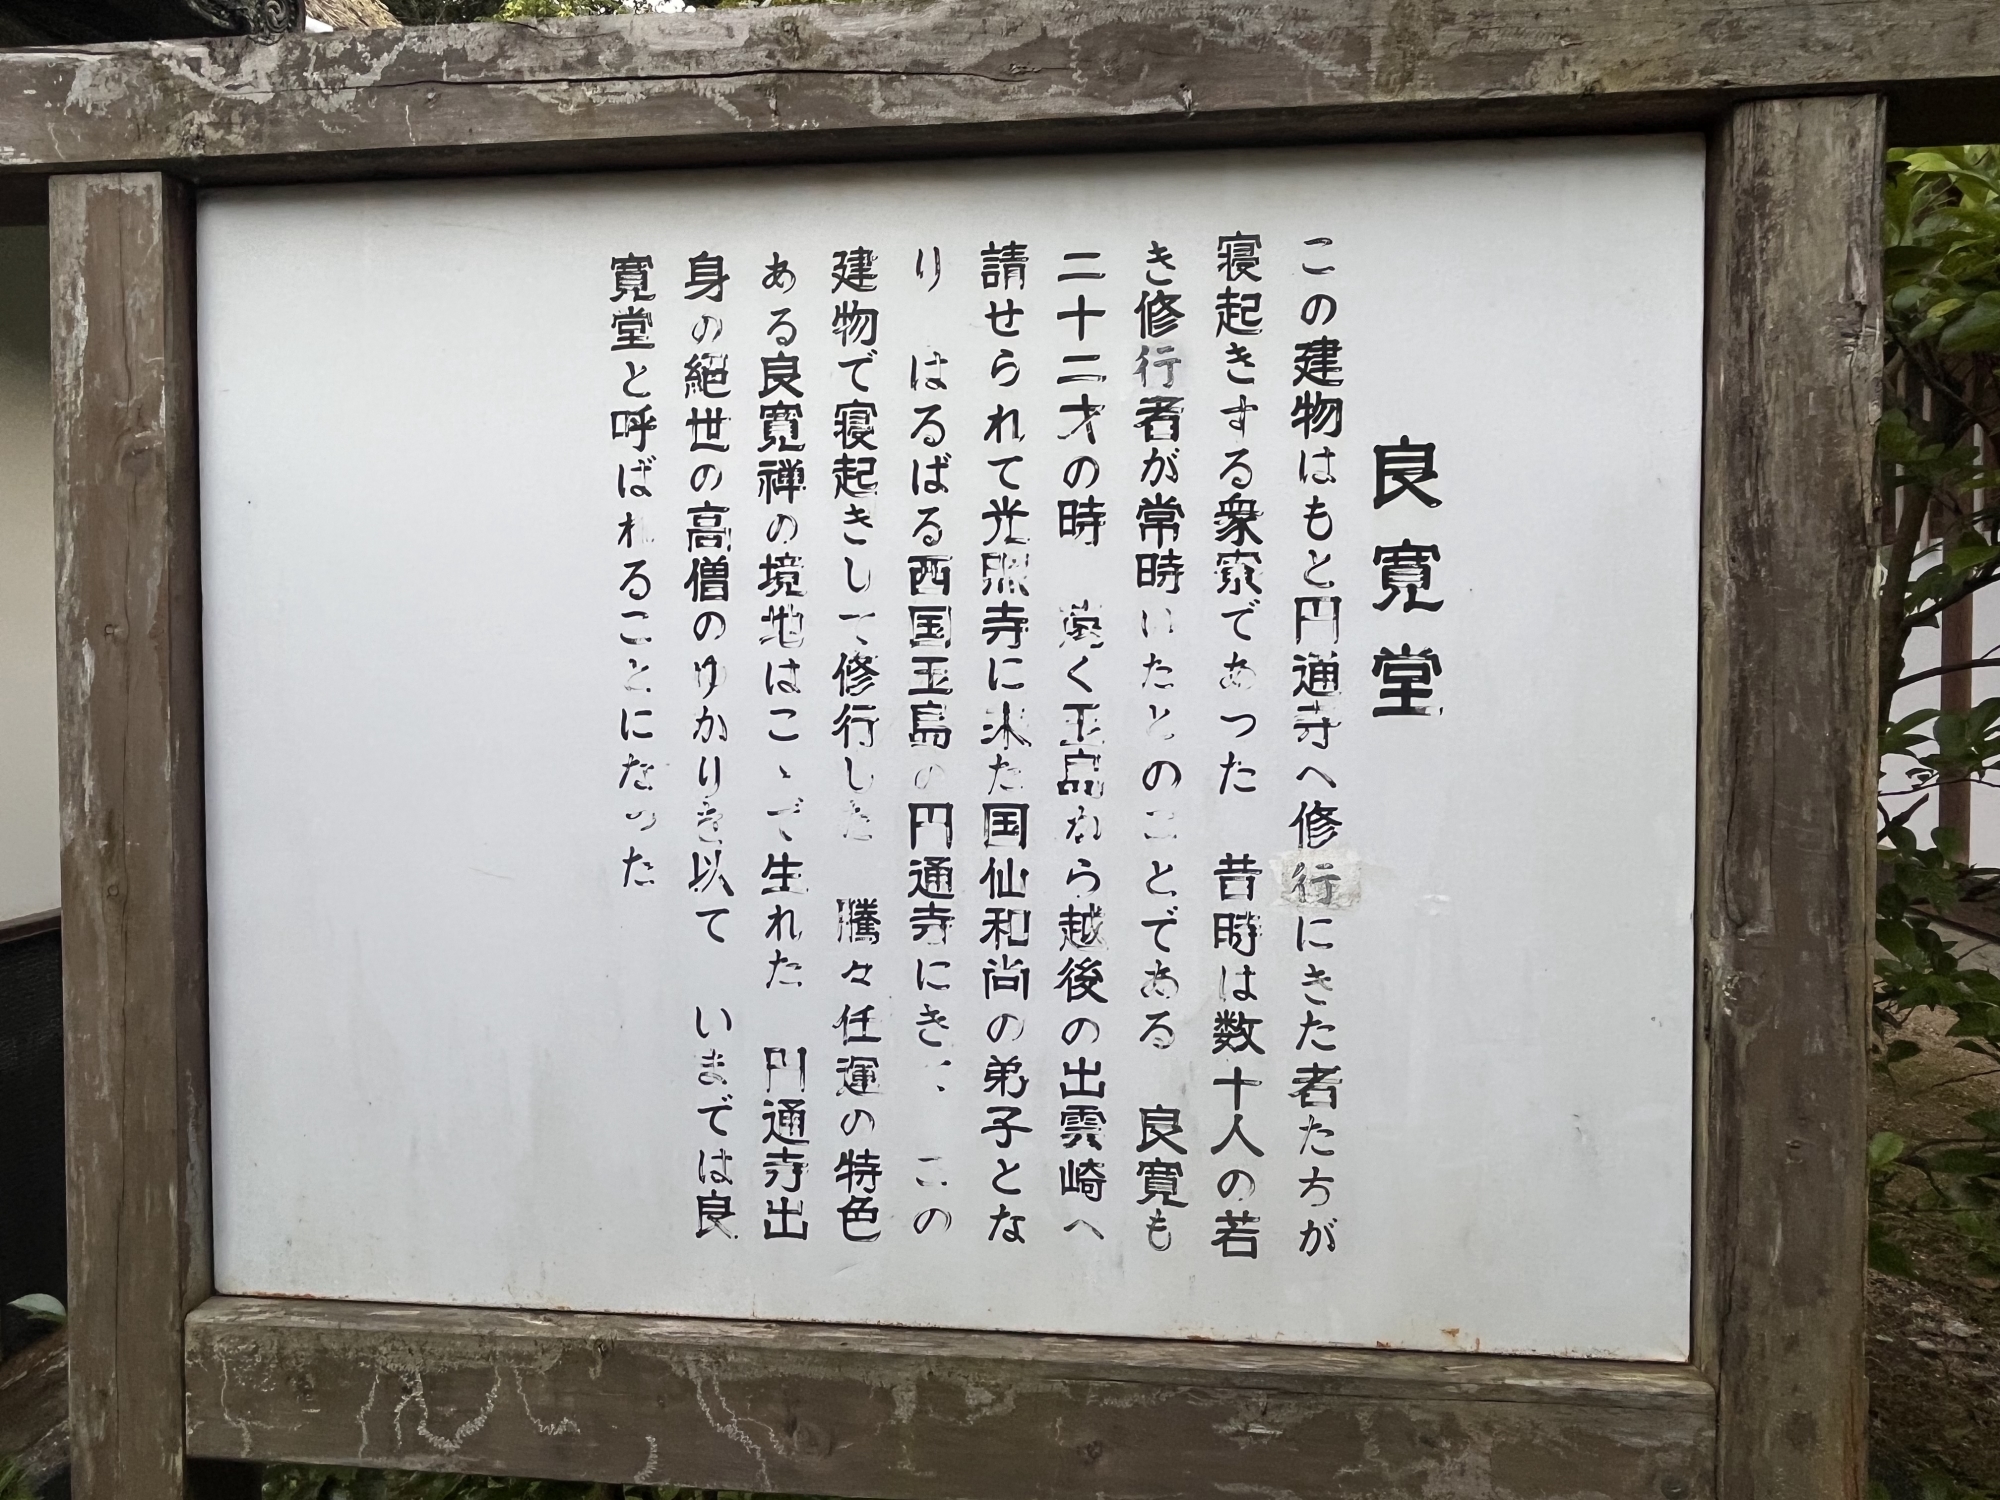 良寛堂
この建物はもと円通寺へ修行にきた者たちが
寝起きする衆寮であった 昔時は数十人の若
き修行者が常時いたとのことである 良寛も
二十二才の時 遠く玉島から越後の出雲崎へ
請せられて光照寺に来た国仙和尚の弟子とな
り はるばる西国玉島の円通寺にきて この
建物で寝起きして修行した 騰々任運の特色
ある良寛禅の境地はこゝで生れた 円通寺出
身の絶世の高僧のゆかりを以て いまでは良
寛堂と呼ばれることになった